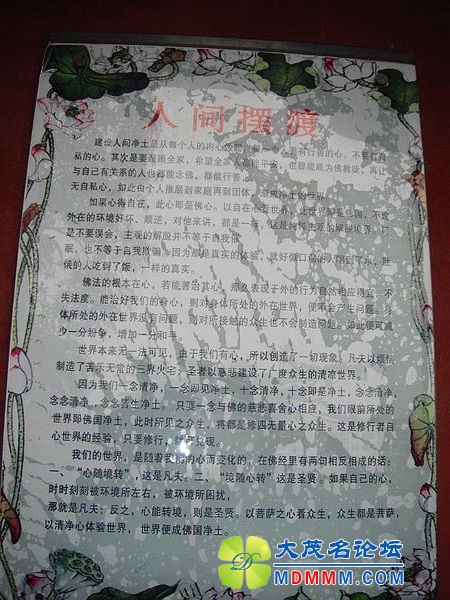 人间摆渡
建设人间净土是从每个人的内心
有行善的心，不要有
私的心。其次是要照顾全家，希望全家人都能平安，也都能成为佛教徒，再让
与自己有关系的人也都能念佛，都能行善，
无自私心，如此由个人推展到家庭再到团体，
成净土的世界。
如果心得自在，此心即是佛心。以自在心看世界，此世界
佛国，不论
外在的环境好坏、顺逆，对他来讲，都是一样，这是纯粹主观的解脱境界。可
是不要误会，主观的解脱并不等于自我催
眠，也不等于自我欺骗。因为那是真实的体验，就好像口渴的人喝到了水，肚
饿的人吃到了饭，一样的真实。
佛法的根本在心，若能善治其心，那么表现于外的行为自然相应得宜，不
失法度。能治好我们的身心，则对身体所处的外在世界，便不会产生问题。身
体所处的外在世界没有问题，则对所接触的众生也不会制造问题。如此便可减
少一分纷争，增加一分和平。
世界本来无一法可见，由于我们有心，所以创造了一切现象。凡夫以烦恼
制造了苦乐无常的三界火宅；圣者以慈悲建设了广度众生的清凉世界。
因为我们一念清净，一念即见净土，十念清净，十念即是净土，念念清净，
念念清净，念念皆生净土。只要一念与佛的慈悲喜舍心相应，我们眼前所处的
世界即佛国净土，此时所见之众生，将都是修四无量心之众生。这是修行者自
心世界的经验，只要修行，
兑现。
我们的世界，是随着我们的心而变化的，在佛经里有两句相反相成的话：
一、“心随境转”，这是凡夫。二、“境随心转”这是圣贤。如果自己的心，
时时刻刻被环境所左右，被环境所困扰，
那就是凡夫；反之，心能转境，则是圣贤。以菩萨之心看众生，众生都是菩萨，
以清净心体验世界，世界便成佛国净土。
大茂名论坛
MDMMM.COM